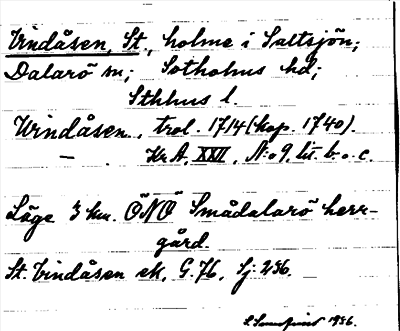 Vindåsen, St., holme i Saltsjön;
Dalarö sn; Sotholms hd;
Sthlms l.
Windåsen, trol. 1714 (kop. 1740).
— Kr A, XXVI, N:o 9, lit. b. o. c.
Läge 3 km. ÖNÖ Smådalarö herr-
gård.
St. Vindåsen ek. G. 76, Sj: 256.
1956.